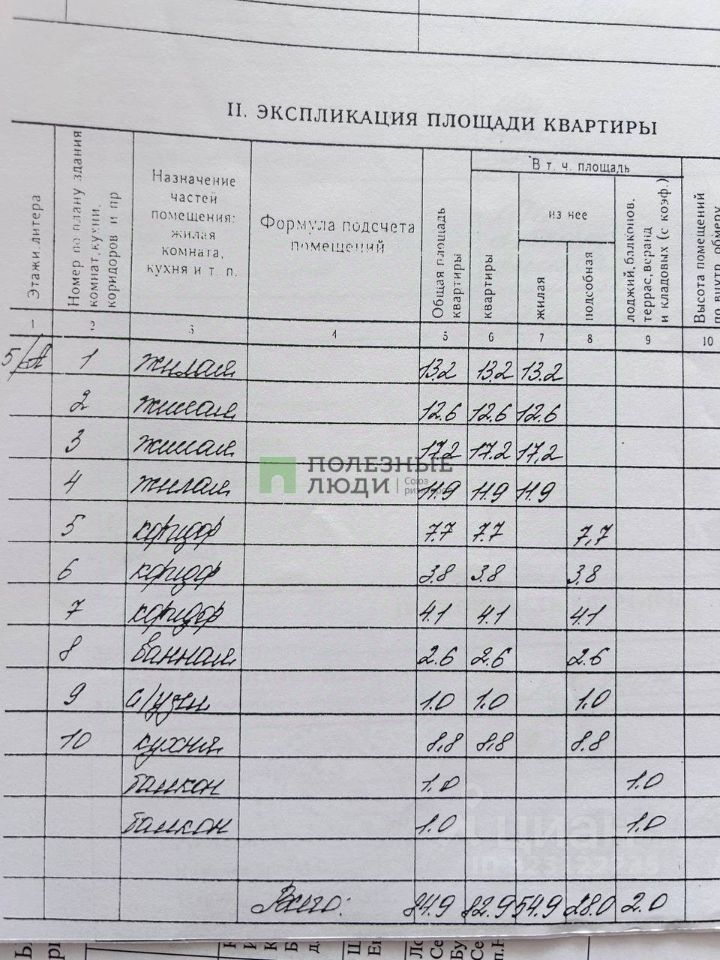 II. ЭКСПЛИКАЦИЯ ПЛОЩАДИ КВАРТИРЫ
Этажи, литера
Номер по плану здания комнат, кухни, коридоров и пр
Назначение частей помещения: жилая комната, кухня и т. п.
Формула подсчета помещений
Общая площадь квартиры
В т. ч. площадь
квартиры
из нее
жилая
подсобная
лоджий, балконов, террас, веранд и кладовых (с коэф.)
Высота помещений по внутр. обмеру
1 2 3 4 5 6 7 8 9 10
5/А 1 жилая 13.2 13.2 13.2
2 жилая 12.6 12.6 12.6
3 жилая 17.2 17.2 17,2
ПОЛЕЗНЫЕ
ЛЮДИ Союз
4 жилая 11.9 11.9 11.9
5 коридор 7.7 7.7 7,7
6 коридор 3.8 3.8 3.8
7 коридор 4.1 4.1 4.1
8 ванная 2.6 2.6 2.6
9 с/узел 1.0 1.0 1.0
10 кухня 8,8 8,8 8.8
балкон 1.0 1.0
балкон 1.0 1.0
циан
Всего: 84.9 82.9 54.9 28.0 2.0